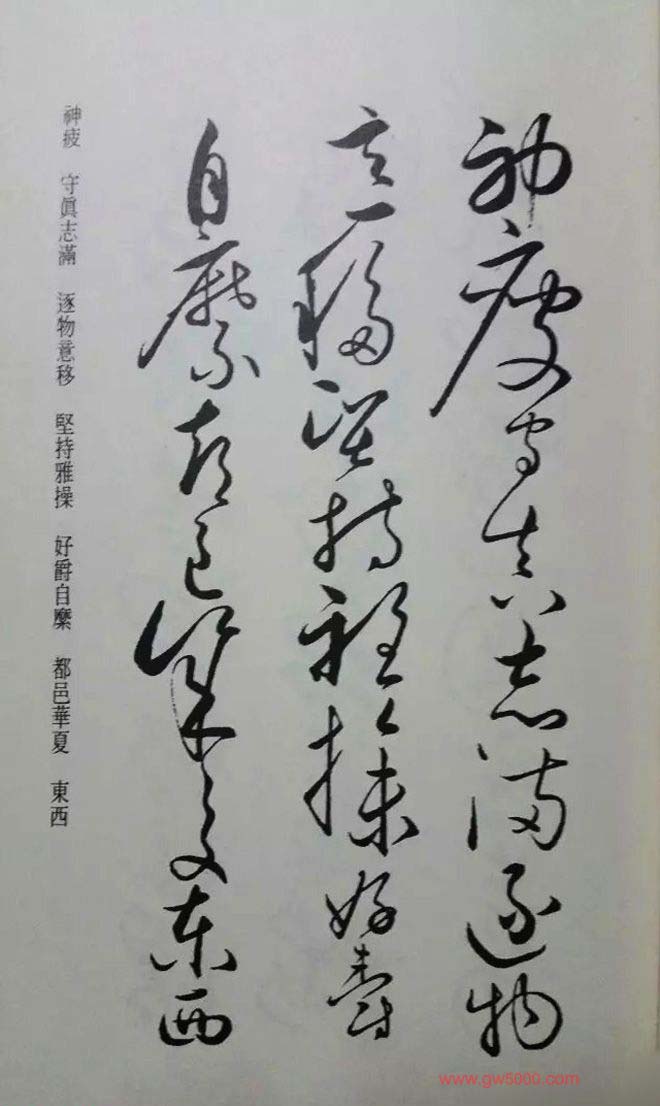 神疲守真志满逐物
意移坚持雅操好爵
自縻都邑华夏东西
神疲 守眞志滿 逐物意移 堅持雅操 好爵自縻 都邑華夏 東西
www.gw5000.com